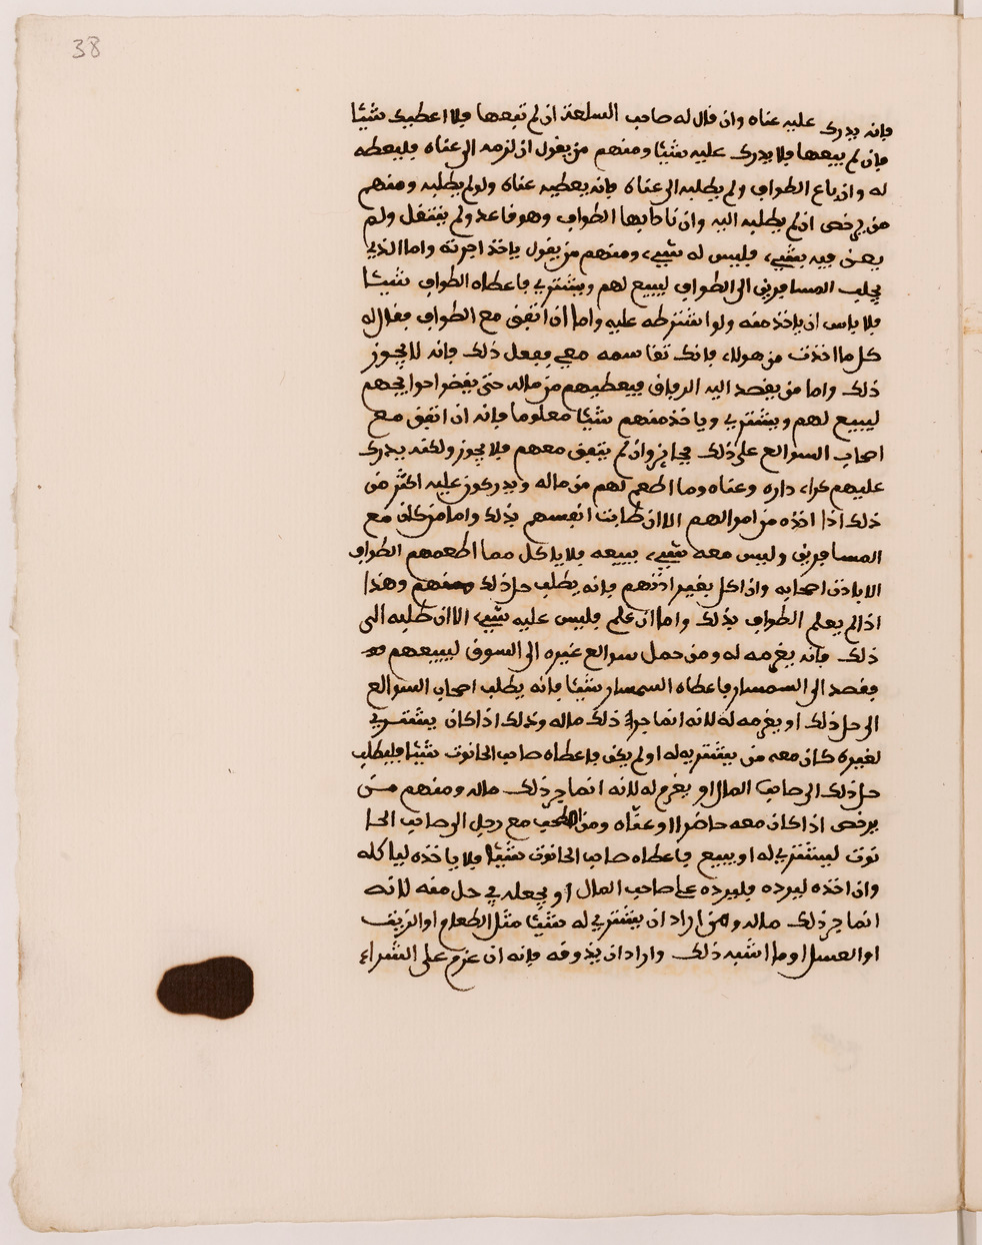 38
فإنه يدرك عليه عناه وان قال له صاحب السلعة ان لم تبعها فلا اعطيك شيئا
فإن لم يبعها فلا يدرك عليه شيئا ومنهم من يقول ان لزمه الى عناه فليعطه
له وان باع الطواف ولم يطلبه الى عناه فإنه يعطيه عناه ولو لم يطلبه ومنهم
من يرخص ان لم يطلبه اليه وان نادا بها الطواف وهو قاعد ولم ينتقل ولم
يعن فيه بشيء فليس له شيء ومنهم من يقول ياخذ اجرته واما الذي
يجلب المسافرين الى الطواف ليبيع لهم ويشتري فاعطاه الطواف شيئا
فلا باس ان ياخذ منه ولو اشترطه عليه واما ان اتفق مع الطواف فقال له
كل ما اخذت من هولاء فانك تقاسمه معي ففعل ذلك فانه لا يجوز
ذلك واما من يقصد اليه الرفاق فيعطيهم من ماله حتى يقضوا حوايجهم
ليبيع لهم ويشتري وياخذ منهم شيئا معلوما فانه ان اتفق مع
اصحاب السوالع على ذلك فجايز وان لم يتفق معهم فلا يجوز ولكنه يدرك
عليهم كراء داره وعناه وما اطعم لهم من ماله ويدركوز عليه اكثر من
ذلك اذا اخذه من اموالهم الا ان طابت انفسهم بذلك واما من كان مع
المسافرين وليس معه شيء يبيعه فلا ياكل مما اطعمهم الطواف
الا باذن اصحابه وان اكل بغير اذنهم فإنه يطلب حل ذلك منهم وهذا
اذا لم يعلم الطواف بذلك واما ان علم فليس عليه شيء الا ان طلبه الى
ذلك فانه يغرمه له ومن حمل سوالع غيره الى السوق ليبيعهم
فقصد الى السمسار فاعطاه السمسار شيئا فإنه يطلب اصحاب السوالع
الى حل ذلك او يغرمه له لانه انما جر ذلك ماله وكذلك اذا كان يشتري
لغيره كان معه من يشتري له او لم يكن فاعطاه صاحب الحانوت شيئا فليطلب
حل ذلك الى صاحب المال او يغرم له لانه انما جر ذلك ماله ومنهم من
يرخص اذا كان معه حاضرا او عناه ومن اصطحب مع رجل الى صاحب الحا
نوت ليشتري له او يبيع فاعطاه صاحب الحانوت شيئا فلا ياخذه لياكله
وان اخذه ليرده فليرده على صاحب المال او يجعله في حل منه لانه
انما جر ذلك ماله ومن اراد ان يشتري له شيئا مثل الطعام او الزيت
او العسل او ما اشبه ذلك واراد ان يذوقه فإنه ان عزم على الشراء